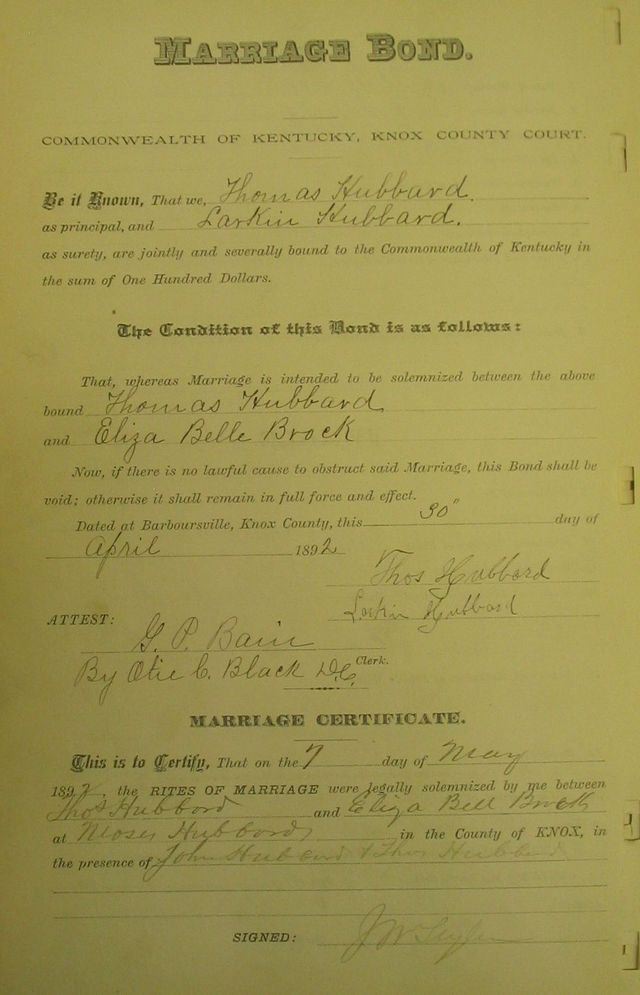 MARRIAGE BOND.
COMMONWEALTH OF KENTUCKY, KNOX COUNTY COURT.
Be it Known, That we, Thomas Hubbard.
as principal, and Larkin Hubbard.
as surety, are jointly and severally bound to the Commonwealth of Kentucky in
the sum of One Hundred Dollars.
The Condition of this Bond is as follows:
That, whereas Marriage is intended to be solemnized between the above
bound Thomas Hubbard
and Eliza Belle Brock
Now, if there is no lawful cause to obstruct said Marriage, this Bond shall be
void; otherwise it shall remain in full force and effect.
Dated at Barboursville, Knox County, this 30" day of
April 1892
Thos Hubbard
Larkin Hubbard
ATTEST:
G. P. Bain
By Otie C. Black D.C. Clerk.
MARRIAGE CERTIFICATE.
This is to Certify, That on the 7 day of May
1892, the RITES OF MARRIAGE were legally solemnized by me between
Thos Hubbord and Eliza Bell Brock
at Moses Hubbords in the County of KNOX, in
the presence of John Hubbard & Thos Hubbard
SIGNED: J W